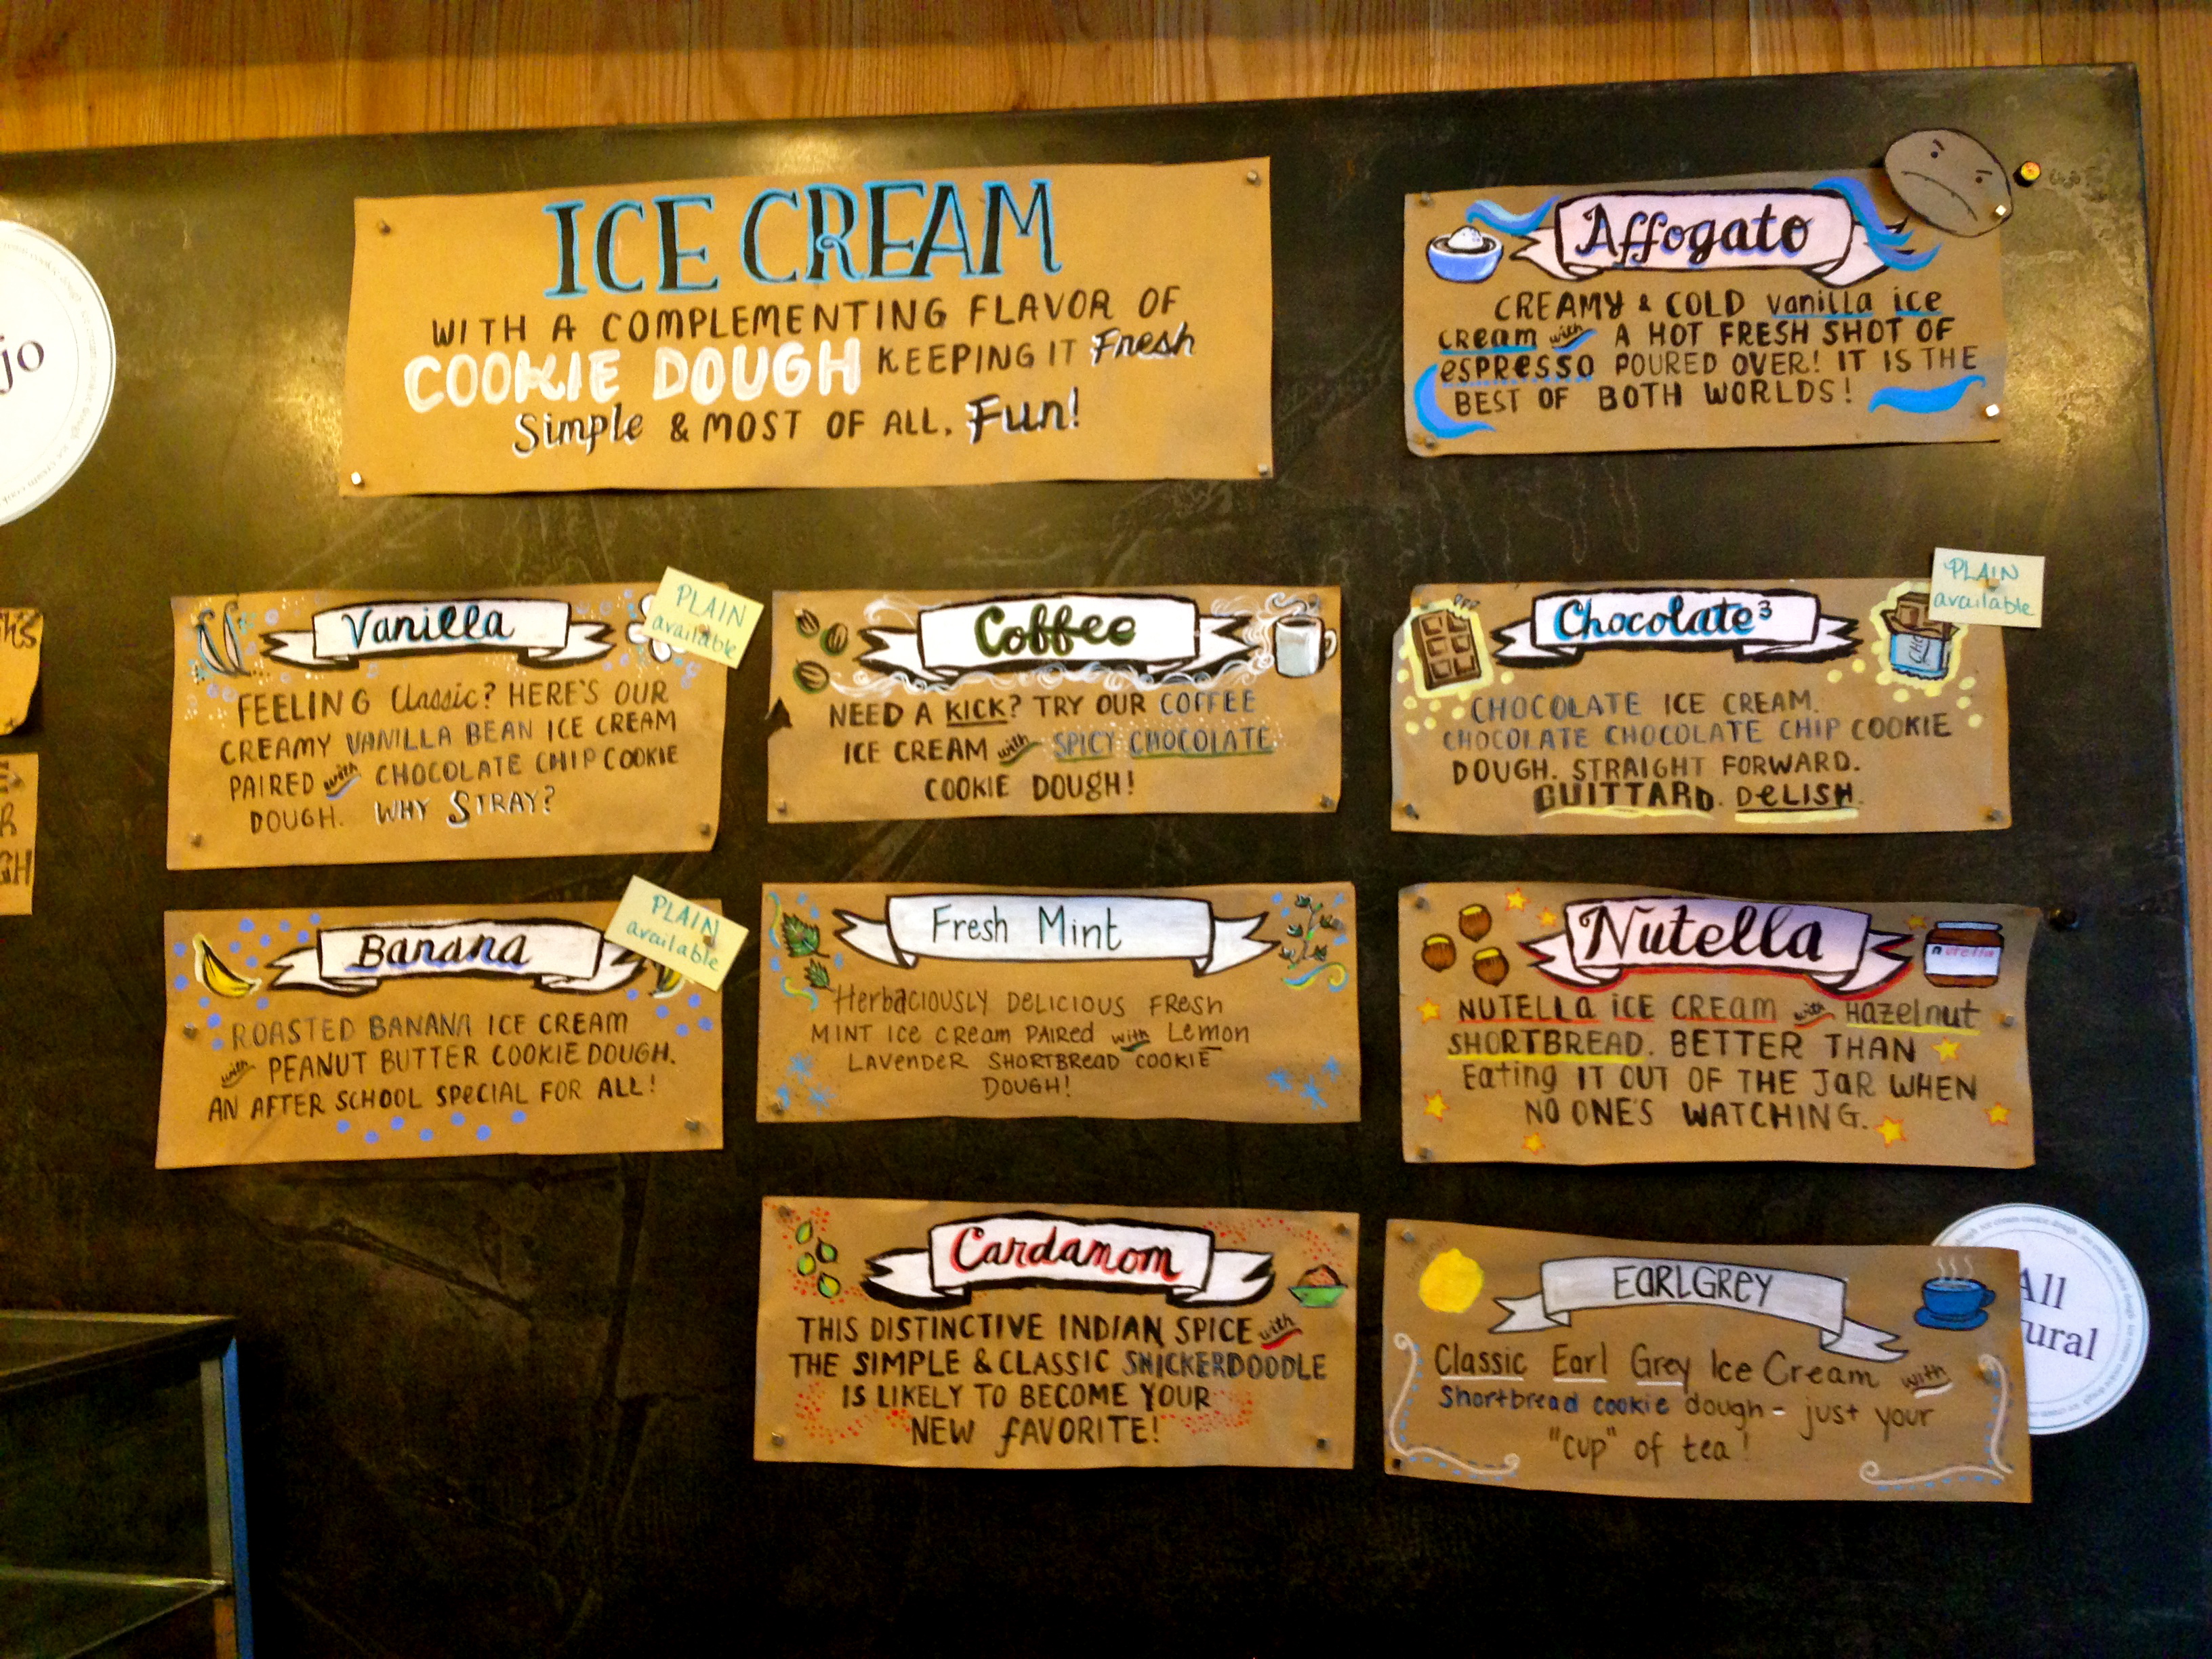 ICE CREAM
WITH A COMPLEMENTING FLAVOR OF
COOKIE DOUGH KEEPING IT Fresh
Simple & MOST OF ALL, Fun!
Affogato
CREAMY & COLD vanilla ice
cream with A HOT FRESH SHOT OF
espresso POURED OVER! IT IS THE
BEST OF BOTH WORLDS!
jo
Vanilla
PLAIN
available
FEELING Classic? HERE'S OUR
CREAMY VANILLA BEAN ICE CREAM
PAIRED with CHOCOLATE CHIP COOKIE
DOUGH. WHY STRAY?
Coffee
NEED A KICK? TRY OUR COFFEE
ICE CREAM with SPICY CHOCOLATE
COOKIE DOUGH!
Chocolate³
PLAIN
available
CHOCOLATE ICE CREAM.
CHOCOLATE CHOCOLATE CHIP COOKIE
DOUGH. STRAIGHT FORWARD.
GUITTARD. DELISH.
Banana
PLAIN
available
ROASTED BANANA ICE CREAM
with PEANUT BUTTER COOKIE DOUGH.
AN AFTER SCHOOL SPECIAL FOR ALL!
Fresh Mint
Herbaciously DELICIOUS FResh
MINT ICe CReam PAIRed with Lemon
LAVENDER SHORTBREAD COOKIE
DOUGH!
Nutella
nutella
NUTELLA ICE CREAM with Hazelnut
SHORTBREAD. BETTER THAN
Eating IT OUT OF THE JAR WHEN
NO ONE'S WATCHING.
Cardamom
THIS DISTINCTIVE INDIAN SPICE with
THE SIMPLE & CLASSIC SNICKERDOODLE
IS LIKELY TO BECOME YOUR
NEW FAVORITE!
EARLGREY
Classic Earl Grey Ice Cream with
Shortbread cookie dough - just your
"cup" of tea!
All
ural